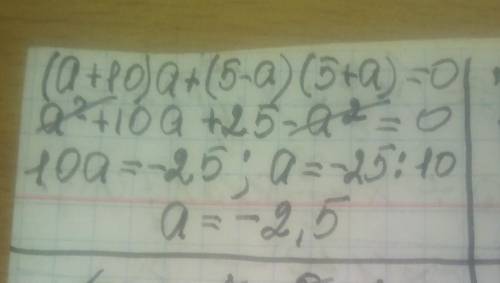 (a+10)a+(5-a)(5+a)=0
a²+10a+25-a²=0
10a=-25; a=-25:10
a=-2,5